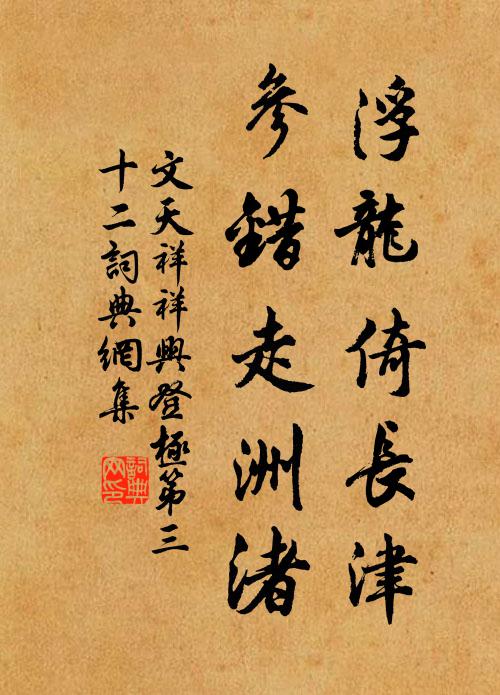 浮龍倚長津
參錯走洲渚
文天祥祥興登極第三
十二詞典網集
詞典
网印